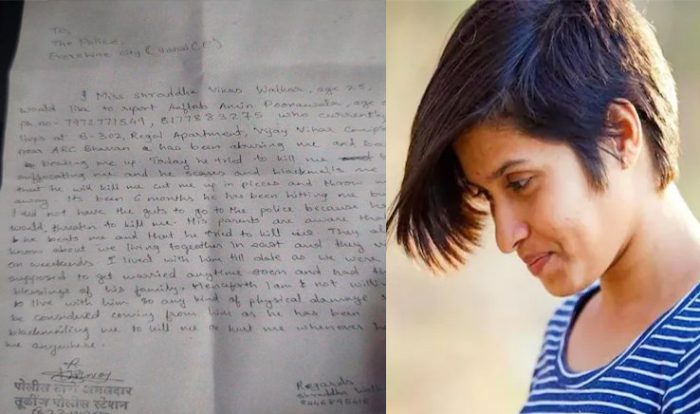 To,
The Police,
I Miss shraddha Vikas Walkar, age 25,
would like to report Aaftab Amin Poonawala, age
7972771549, 8177883275 who currently
at B-302, Regal Apartment, Vijay Vihar Complex
near ARC Bhavan has been abusing me and
beating me up. Today he tried to kill me
suffocating me and he scares and blackmails me
that he will kill me, cut me up in pieces and throw me
away. Its been 6 months he has been hitting me but
I did not have the guts to go to the police because he
would threaten to kill me. His parents are aware that
he beats me and that he tried to kill me. They also
know about us living together in east and they visit
on weekends. I lived with him till date as we were
supposed to get married anytime soon and had the
blessings of his family. Henceforth I am not willing
to live with him so any kind of physical damage
be considered coming from him as he has been
blackmailing me to kill me or hurt me whenever he
me anywhere.
Regards
shraddha Walkar
पोलीस ठाणे अंमलदार
तुळींज पोलीस स्टेशन